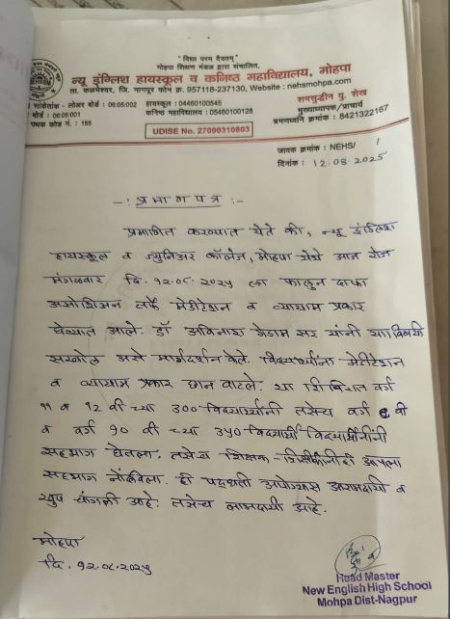 "विद्या परम दैवतम्"
मोहपा शिक्षण मंडळ द्वारा संचालित,
न्यू इंग्लिश हायस्कूल व कनिष्ठ महाविद्यालय, मोहपा
ता. कळमेश्वर, जि. नागपूर फोन क्र. 957118-237130, Website : nehsmohpa.com
सांकेतांक - लोअर बोर्ड : 06:05:002
हायस्कूल : 04460100545
शमसुद्दीन पु. शेख
बोर्ड : 06:05:001
कनिष्ठ महाविद्यालय : 05460100128
मुख्याध्यापक/प्राचार्य
कोड नं. : 155
भ्रमणध्वनि क्रमांक : 8421322167
UDISE No. 27090310803
जावक क्रमांक : NEHS/ 1
दिनांक : 12.08.2025
-: प्रमाणपत्र :-
प्रमाणित करण्यात येते की, न्यू इंग्लिश
हायस्कूल व ज्युनिअर कॉलेज, मोहपा येथे आज रोज
मंगळवार दि. १२.०८.२०२५ ला फालुन दाफा
असोशिअन तर्फे मेडीटेशन व व्यायाम प्रकार
घेण्यात आले. डॉ अविनाश मेडाम सर यांनी याविषयी
सखोल असे मार्गदर्शन केले. विद्यार्थ्यांना मेटीटेशन
व व्यायाम प्रकार छान वाटले. या शिबिरात वर्ग
११ व १२ वी च्या ३०० विद्यार्थ्यांनी तसेच वर्ग ९ वी
व वर्ग १० वी च्या ३५० विद्यार्थी विद्यार्थीनींनी
सहभाग घेतला. तसेच शिक्षक शिक्षीकांनीही आपला
सहभाग नोंदविला. ही पध्दती आरोग्यास आरामदायी व
खुप चांगली आहे. तसेच लाभदायी आहे.
मोहपा
दि. १२.०८.२०२५
Head Master
New English High School
Mohpa Dist-Nagpur